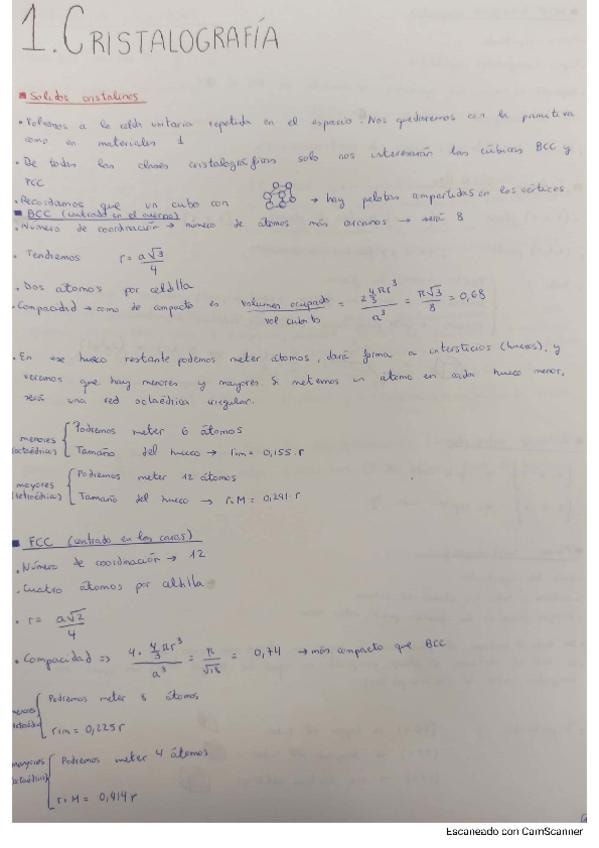 1. CRISTALOGRAFÍA
Solidos cristalinos
• Volvemos a la celda unitaria repetida en el espacio. Nos quedaremos con la primitiva
como en materiales 1
• De todas las clases cristalográficas solo nos interesarán las cúbicas BCC y
FCC
• Recordamos que un cubo con → hay pelotas compartidas en los vértices
BCC (centrado en el cuerpo)
• Número de coordinación → número de átomos más cercanos → será 8
• Tendremos r = a√3/4
• Dos átomos por celdilla
• Compacidad → como de compacto es volumen ocupado/vol cubito = 2 4/3 πr³/a³ = π√3/8 = 0,68
• En ese hueco restante podemos meter átomos, dará forma a intersticios (huecos), y
veremos que hay menores y mayores. Si metemos un átomo en cada hueco menor,
será una red octaédrica irregular.
menores (octaédricas) { Podremos meter 6 átomos
Tamaño del hueco → rim = 0,155·r
mayores (tetraédrica) { Podremos meter 12 átomos
Tamaño del hueco → riM = 0,291·r
FCC (centrado en las caras)
• Número de coordinación → 12
• Cuatro átomos por celdilla
• r = a√2/4
• Compacidad => 4· 4/3 πr³/a³ = π/√18 = 0,74 → más compacto que BCC
menores { Podremos meter 8 átomos
rim = 0,225 r
mayores (octaédrica) { Podremos meter 4 átomos
riM = 0,414 r
Escaneado con CamScanner